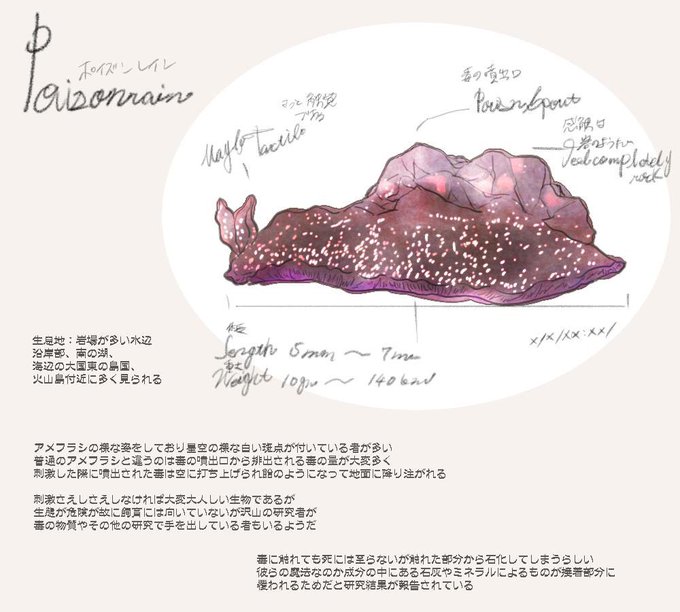 Poizonrain
ポイズンレイン
きっと触覚
である
Maybe Tactile
毒の噴出口
Poison Spout
感触は
岩のようだ
Feel completely
rock
体長
Length 5mm ～ 7m
重さ
Weight 10gm ～ 140
x/x/xx:xx/
生息地：岩場が多い水辺
沿岸部、南の湖、
海辺の大国東の島国、
火山島付近に多く見られる
アメフラシの様な姿をしており星空の様な白い斑点が付いている者が多い
普通のアメフラシと違うのは毒の噴出口から排出される毒の量が大変多く
刺激した際に噴出された毒は空に打ち上げられ飴のようになって地面に降り注がれる
刺激さえしさえしなければ大変大人しい生物であるが
生態が危険が故に飼育には向いていないが沢山の研究者が
毒の物質やその他の研究で手を出している者もいるようだ
毒に触れても死には至らないが触れた部分から石化してしまうらしい
彼らの魔法なのか成分の中にある石灰やミネラルによるものが接着部分に
覆われるためだと研究結果が報告されている